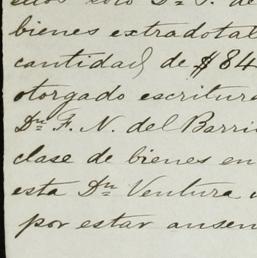 ellos solo Dª F. de
bienes extradotal
cantidad de $84
otorgado escritura
Dn F. N. del Barri
clase de bienes en
esta Dn Ventura
por estar ausen